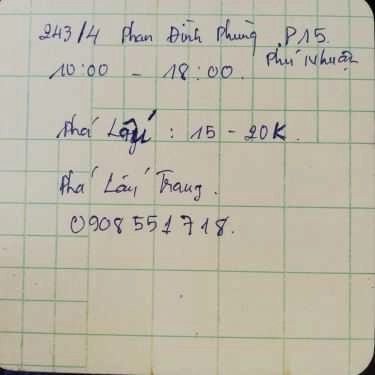 243/4 Phan Đình Phùng P15.
Phú Nhuận
10:00 - 18:00.
Phá Lấu : 15 - 20K.
Phá Lấu Trang.
0908551718.